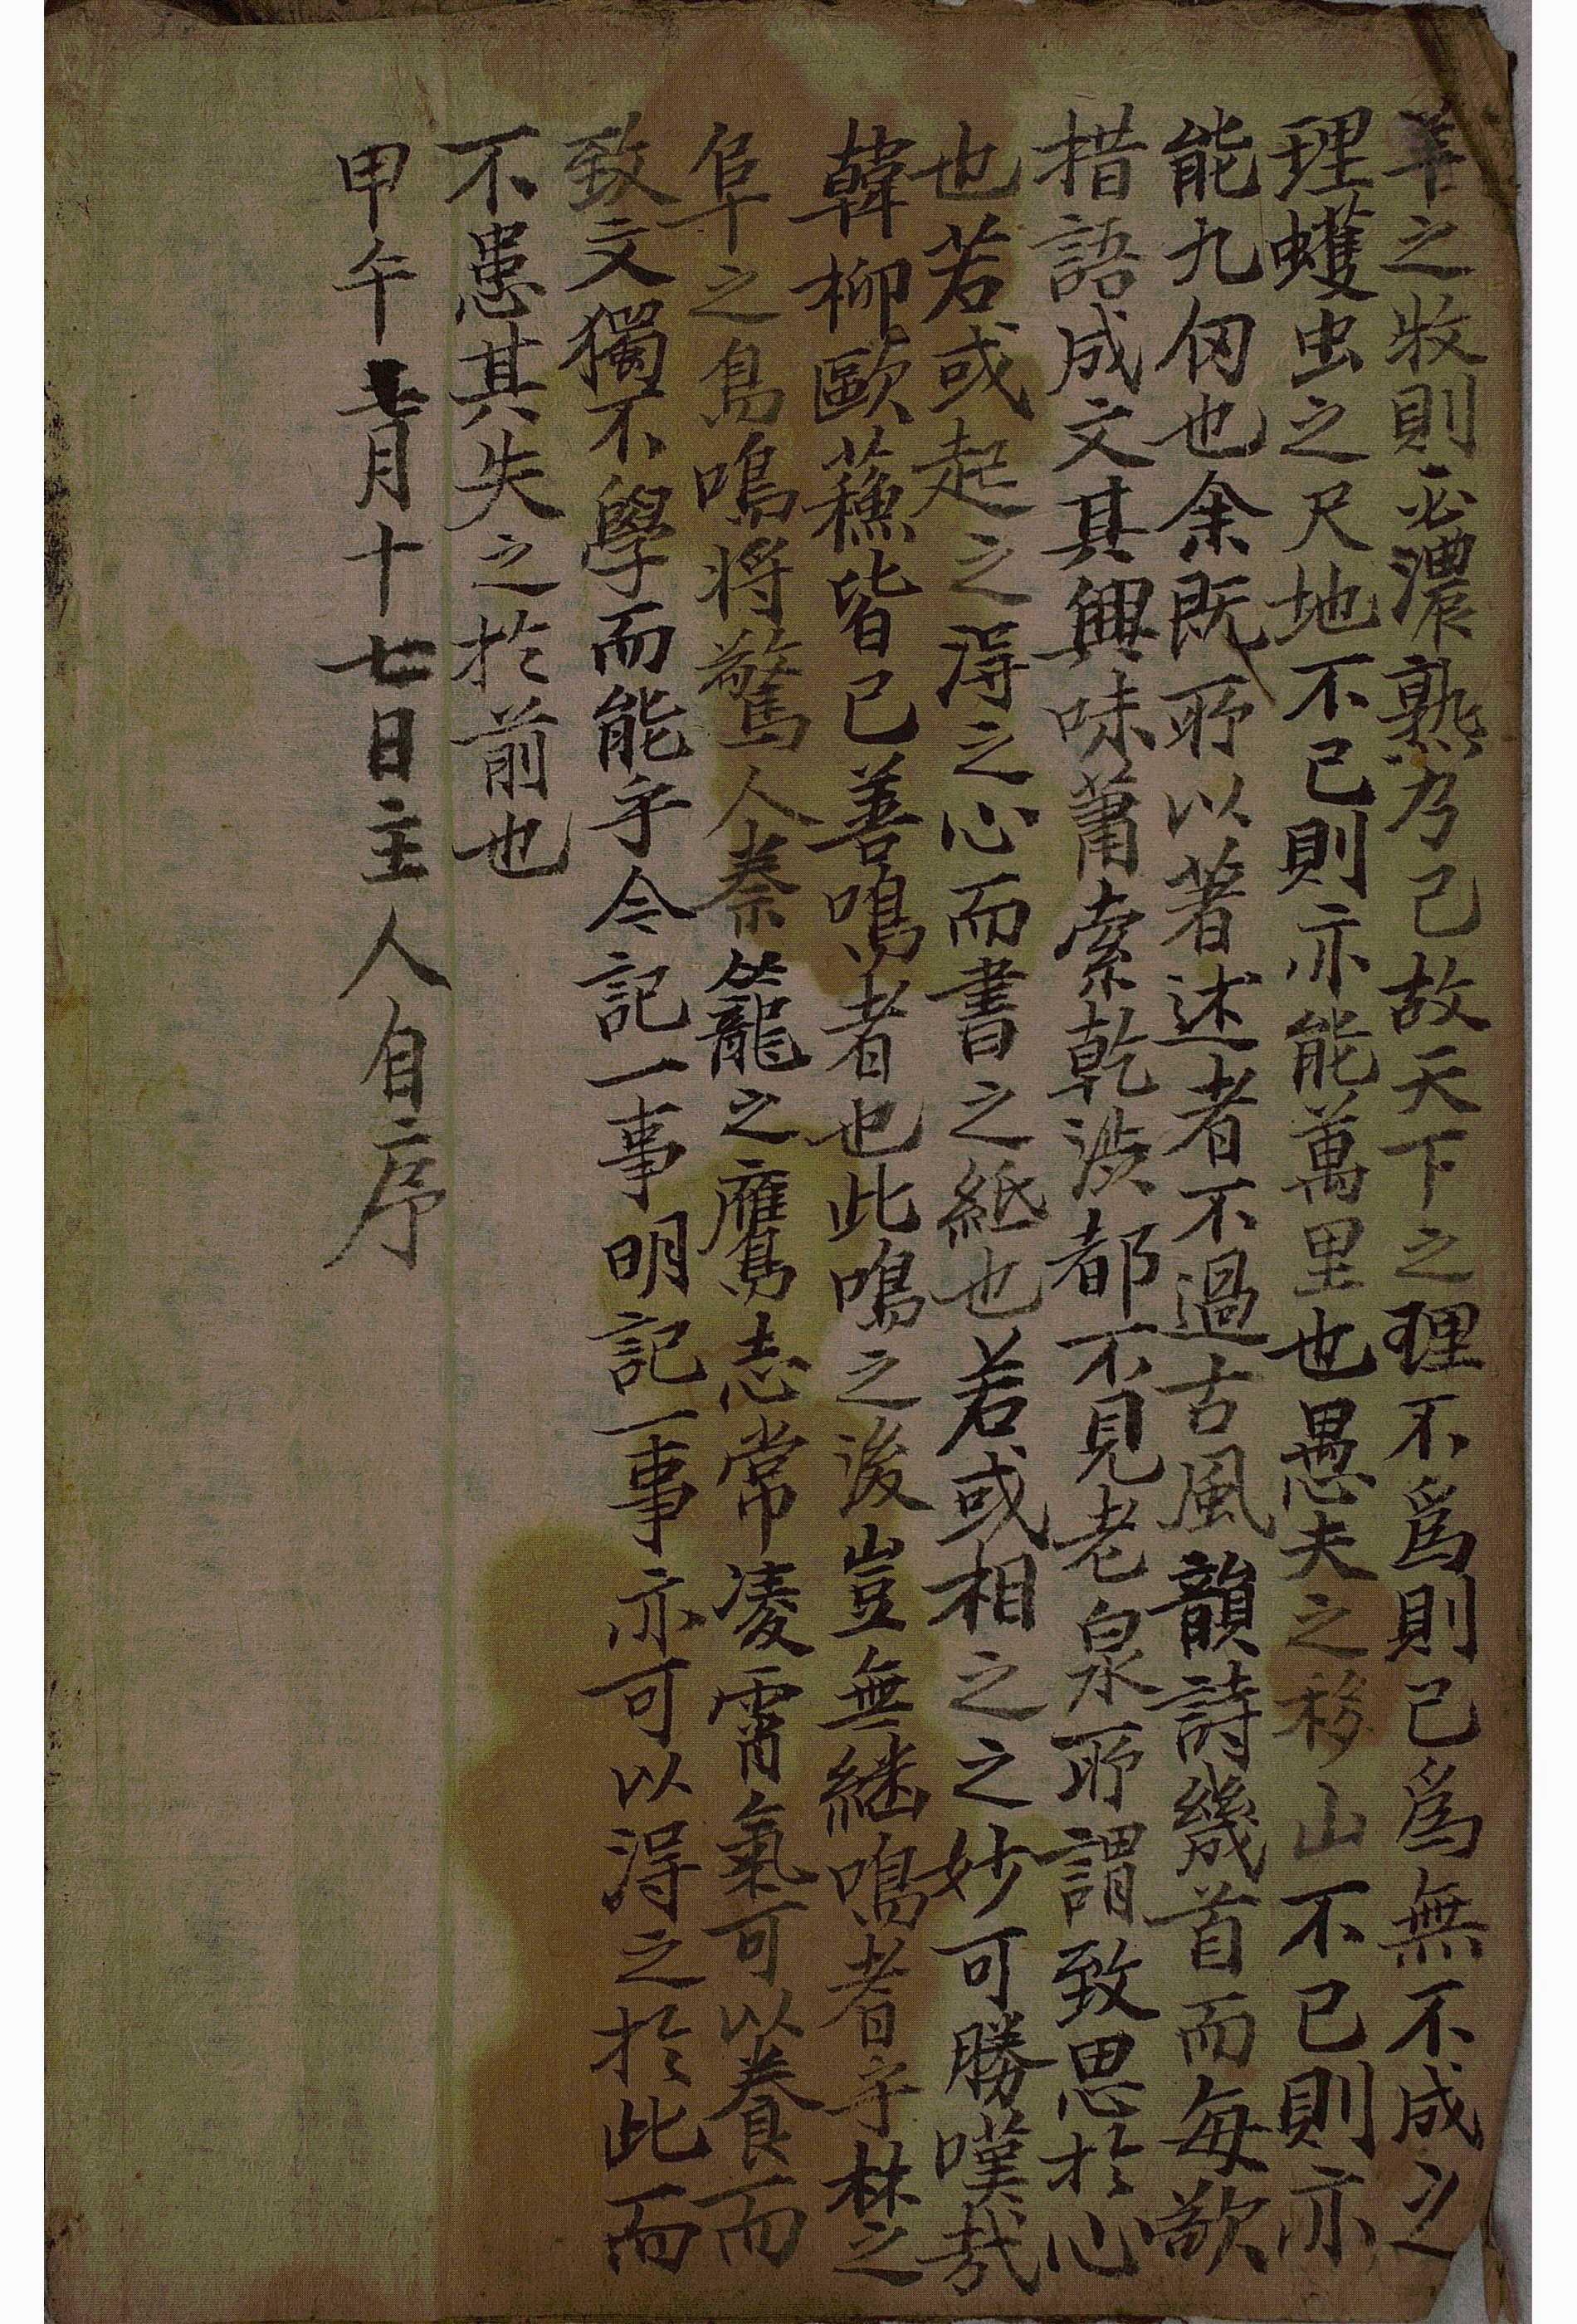 羊之牧則必濃熟乃已故天下之理不爲則已爲無不成之
理蠖虫之尺地不已則亦能萬里也愚夫之移山不已則亦
能九仞也余既所以著述者不過古風韻詩幾首而每欲
措語成文其興味蕭索乾澁都不見老泉所謂致思於心
也若或起之淂之心而書之紙也若或相之之妙可勝嘆哉
韓柳歐蘓皆已善鳴者也此鳴之後豈無継鳴者乎楚之
阜之鳥鳴将驚人秦籠之鷹志常凌霄氣可以養而
致文獨不學而能乎今記一事明記一事亦可以淂之於此而
不患其失之於前也
甲午月十七日主人自序